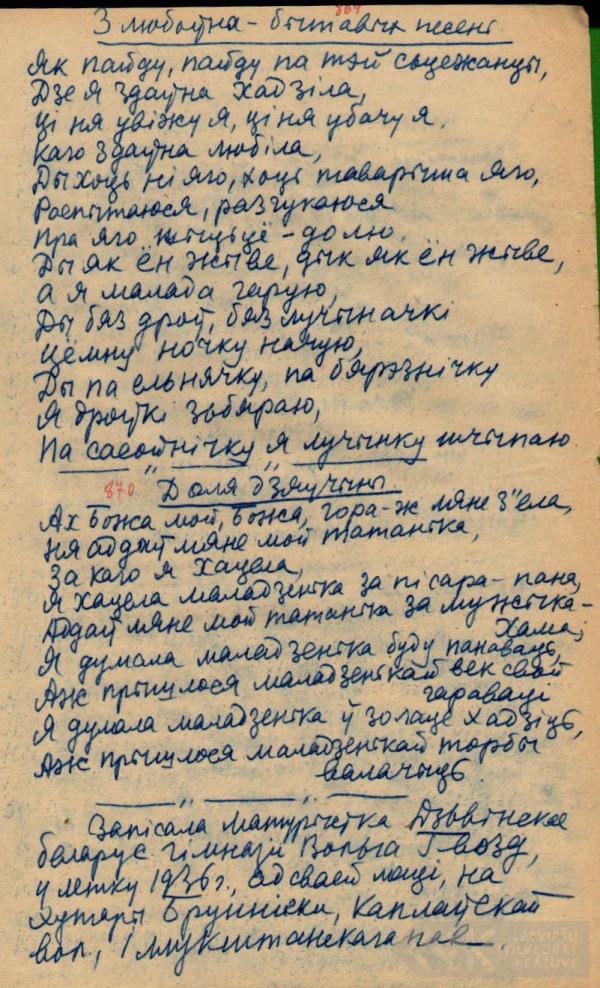 869
З любоўна-бытавых песень.
Як пайду, пайду па тэй сьцежанцы,
Дзе я здаўна хадзіла,
Ці ня увіжу я, ці ня убачу я.
Каго здаўна любіла,
Ды хоць ні яго, хоць таварыша яго,
Роспытаюся, разгукаюся
Пра яго жыцьцё-долю.
Ды як ён жыве, дык як ён жыве,
а я малада гарую,
Ды бяз дроў, бяз лучыначкі
цёмну ночку начую,
Ды па ельнячку, па бярэзнічку
Я дроўкі зьбяраю,
Па сасоўнічку я лучынку шчыпаю
870
Доля дзяўчыны.
Ах Божа мой, Божа, гора-ж мяне з'ела,
Ня аддаў мяне мой татанька,
За каго я хацела,
Я хацела маладзенька за пісара-пана,
Аддаў мяне мой татанька за мужыка-
Хама,
Я думала маладзенька буду панаваць,
Аж прышлося маладзенькай век свой
гараваці
Я думала маладзенька ў золаце хадзіць,
Аж прышлося маладзенькай торбы
валачыць
Запісала матурыстка Дзьвінскае
беларус гімназіі Вольга Гвозд,
у летку 1936г., ад сваей маці, на
хутары Брунніски, Каплаўскай
вол, Ілмукштанскага пав
LATVIEŠU
FOLKLORAS
KRĀTUVE